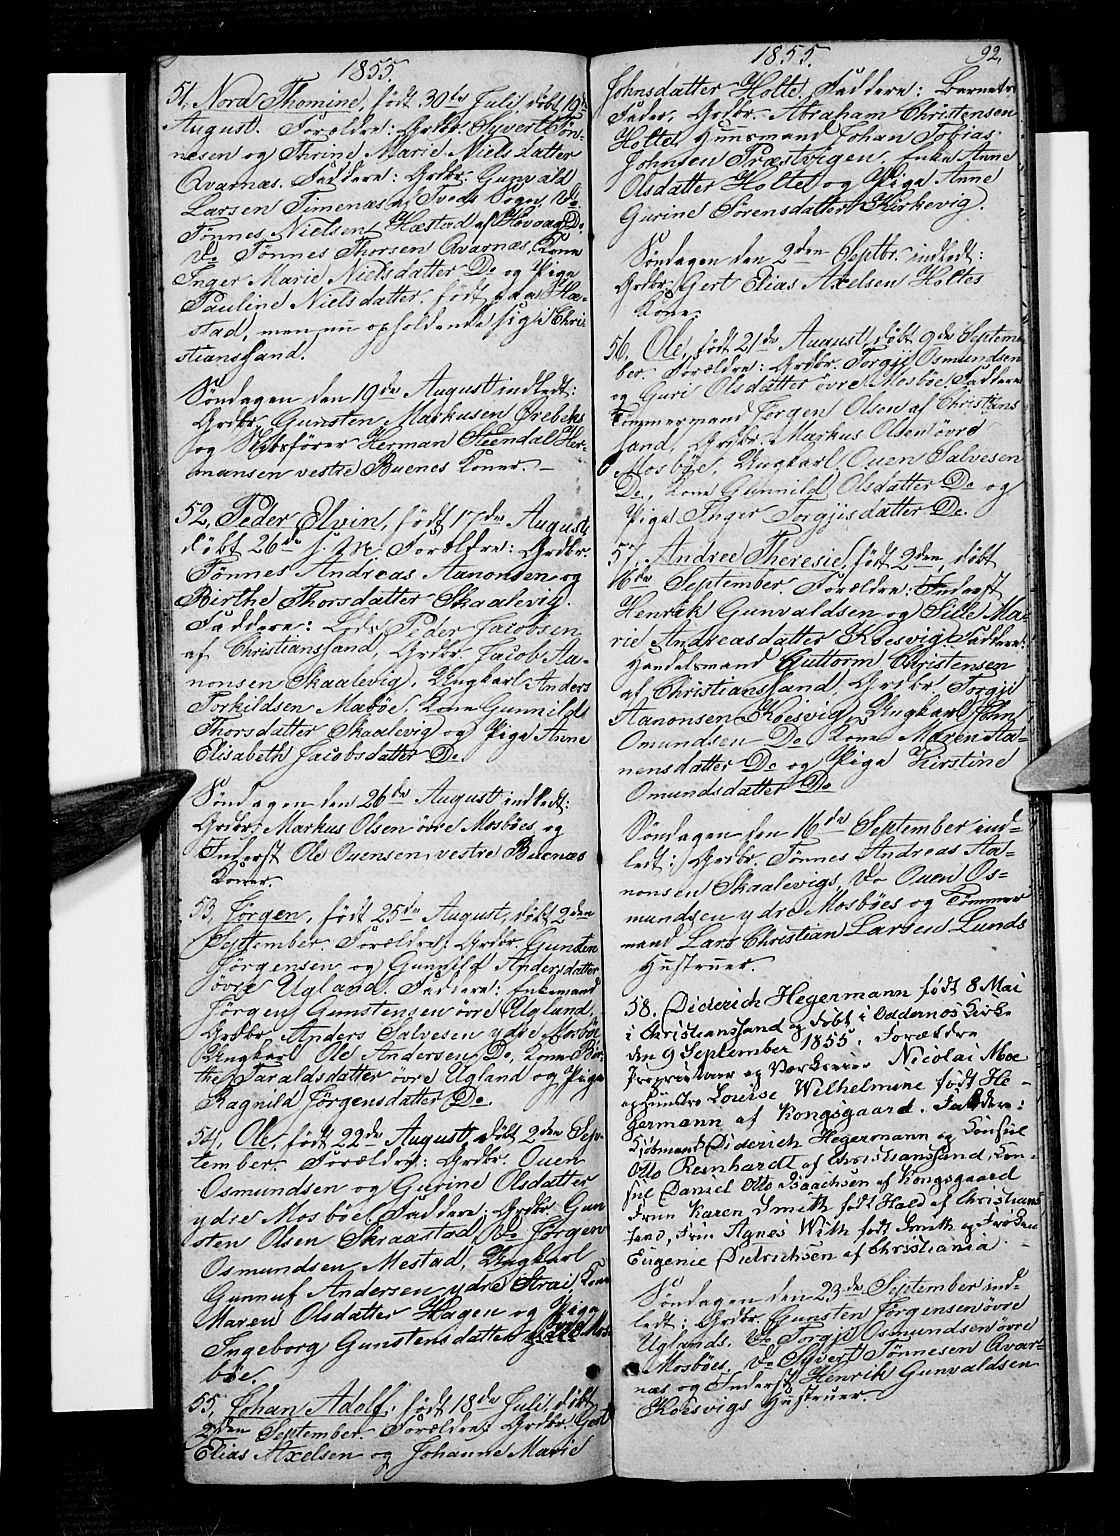 1855.
51, Nora Thomine, født 30te Juli, døbt 19de
August. Forældre: Grdbr. Syvert Tøn-
nesen og Thrine Marie Nielsdatter
Qvarnæs. Faddere: Grdbr. Gunvald
Larsen Timenæs af Tveds Sogn, Do
Tønnes Nielsen Hæstad af Høvaag Do,
Do Tønnes Thorsen Qvarnæs, Kone
Inger Marie Nielsdatter Do og Pige
Pauline Nielsdatter, født paa Hæ-
stad, men nu opholdende sig i Chri-
stianssand.
Søndagen den 19de August indledt:
Grdbr. Gunsten Markusen Ørebeks
og Skibsfører Herman Steendal Her-
mansen vestre Buenes Koner. –
52, Peder Elvin, født 17de August,
døbt 26de s. M. Forældre: Grdbr.
Tønnes Andreas Aanonsen og
Birthe Thorsdatter Skaalevig.
Faddere: Peder Jacobsen
af Christianssand, Grdbr. Jacob Aa-
nonsen Skaalevig, Ungkarl Anders
Torkildsen Mæbøe, Kone Gunnild
Thorsdatter Skaalevig og Pige Anne
Elisabeth Jacobsdatter Do
Søndagen den 26de August indledt:
Grdbr. Markus Olsen øvre Mosbøes og
Inderst Ole Ouensen vestre Buenæs
Koner.
53, Jørgen, født 25de August, døbt 2den
September. Forældre: Grdbr. Gunsten
Jørgensen og Gunild Andersdatter
øvre Ugland. Faddere: Enkemand
Jørgen Gunstensen øvre Ugland,
Grdbr. Anders Salvesen ydre Mosbøe
Ungkarl Ole Andersen Do, Kone Bir-
the Taraldsdatter øvre Ugland og Pige
Ragnild Jørgensdatter Do.
54, Ole, født 22de August, døbt 2den Sep-
tember. Forældre: Grdbr. Ouen
Osmundsen og Gurine Olsdatter
ydre Mosbøe. Faddere: Grdbr. Gun-
sten Olsen Skraastad, Do Jørgen
Osmundsen Mestad, Ungkarl
Gunnuf Andersen ydre Strai, Kone
Maren Olsdatter Hagen og Pige
Ingeborg Gunstensdatter øvre Mos-
bøe.
55, Johan Adolf, født 18de Juli, døbt
2den September. Forældre: Grdbr. Gert
Elias Axelsen og Johanne Marie
1855. 92.
Johnsdatter Holte. Faddere: Barnets
Fader, Grdbr. Abraham Christensen
Holte, Huusmand Johan Tobias
Johnsen Præstvigen, Enke Anne
Olsdatter Holte og Pige Anne
Gurine Sørensdatter Kirkevig.
Søndagen den 2den Septbr. indledt:
Grdbr. Gert Elias Axelsen Holtes
Kone.
56, Ole, født 21de August, døbt 9de Septem-
ber. Forældre: Grdbr. Torgji Osmundsen
og Guri Olsdatter øvre Mosbøe. Faddere
Tømmermand Jørgen Olsen af Christians
sand, Grdbr. Markus Olsen øvre
Mosbøe, Ungkarl Ouen Salvesen
Do, Kone Gunnild Olsdatter Do og
Pige Inger Torgjisdatter Do.
57, Andree Theresie, født 2den, døbt
16de September. Forældre: Inderst
Henrik Gunvaldsen og Sille Ma-
rie Andreasdatter Koesvig. Faddere:
Handelsmand Guttorm Christensen
af Christianssand, Grdbr. Torgji
Aanonsen Koesvig, Ungkarl
Omundsen Do Kone Maren Aa-
nensdatter Do og Pige Kirstine
Omundsdatter Do
Søndagen den 16de September ind-
ledt: Grdbr. Tønnes Andreas Aa-
nonsen Skaalevigs, Do Ouen Os-
mundsen ydre Mosbøes og Tømmer
mand Lars Christian Larsen Lunds
Hustruer.
58. Diderich Hegermann født 8 Mai
i Christianssand og døbt i Oddernes Kirke
den 9 September 1855. Forældre
Proprietair og Værkseier Nicolai Moe
og Hustru Louise Wilhelmine født He-
germann af Kongsgaard. Faddere:
Kjøbmand Diderich Hegermann og Consul
Otto Reinhardt af Christianssand, Con-
sul Daniel Otto Isaachsen af Kongsgaard
Frue Karen Smith født Hald af Christians
sand, Frue Agnes With født Smith og Frøken
Eugenie Dietrichsen af Christiania.
Søndagen den 23de September ind-
ledt: Grdbr. Gunsten Jørgensen øvre
Uglands, Do Torgji Osmundsen øvre
Mosbøes, Do Syvert Tønnesen Qvar-
næs og Inderst Henrik Gunvaldsen
Koesvigs Hustruer.